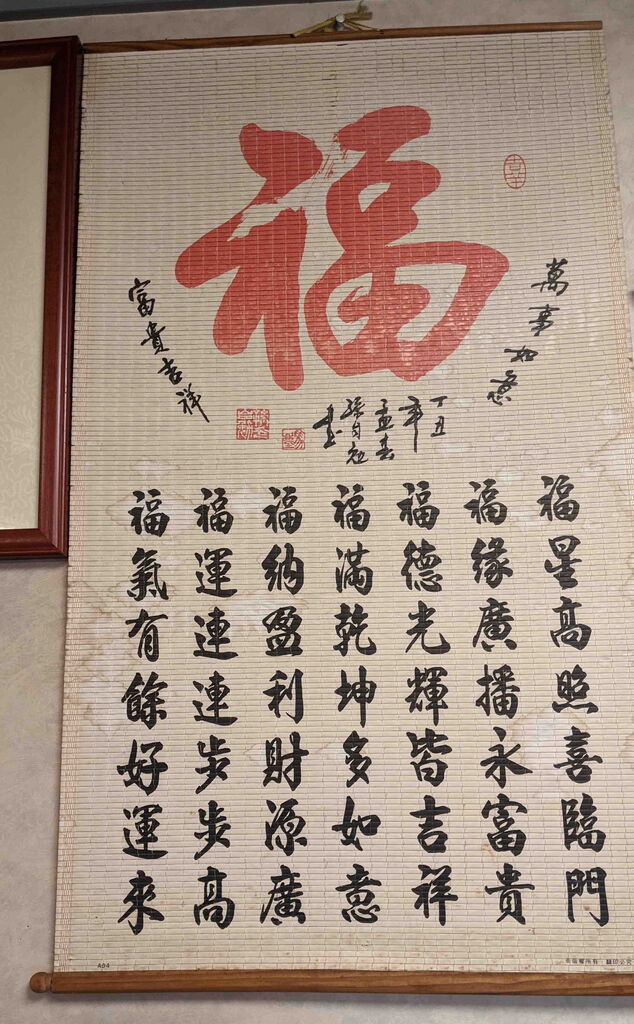 福
萬事如意
富貴吉祥
丁丑
年
孟春
書
福星高照喜臨門
福緣廣播永富貴
福德光輝皆吉祥
福滿乾坤多如意
福納盈利財源廣
福運連連步步高
福氣有餘好運來
A04